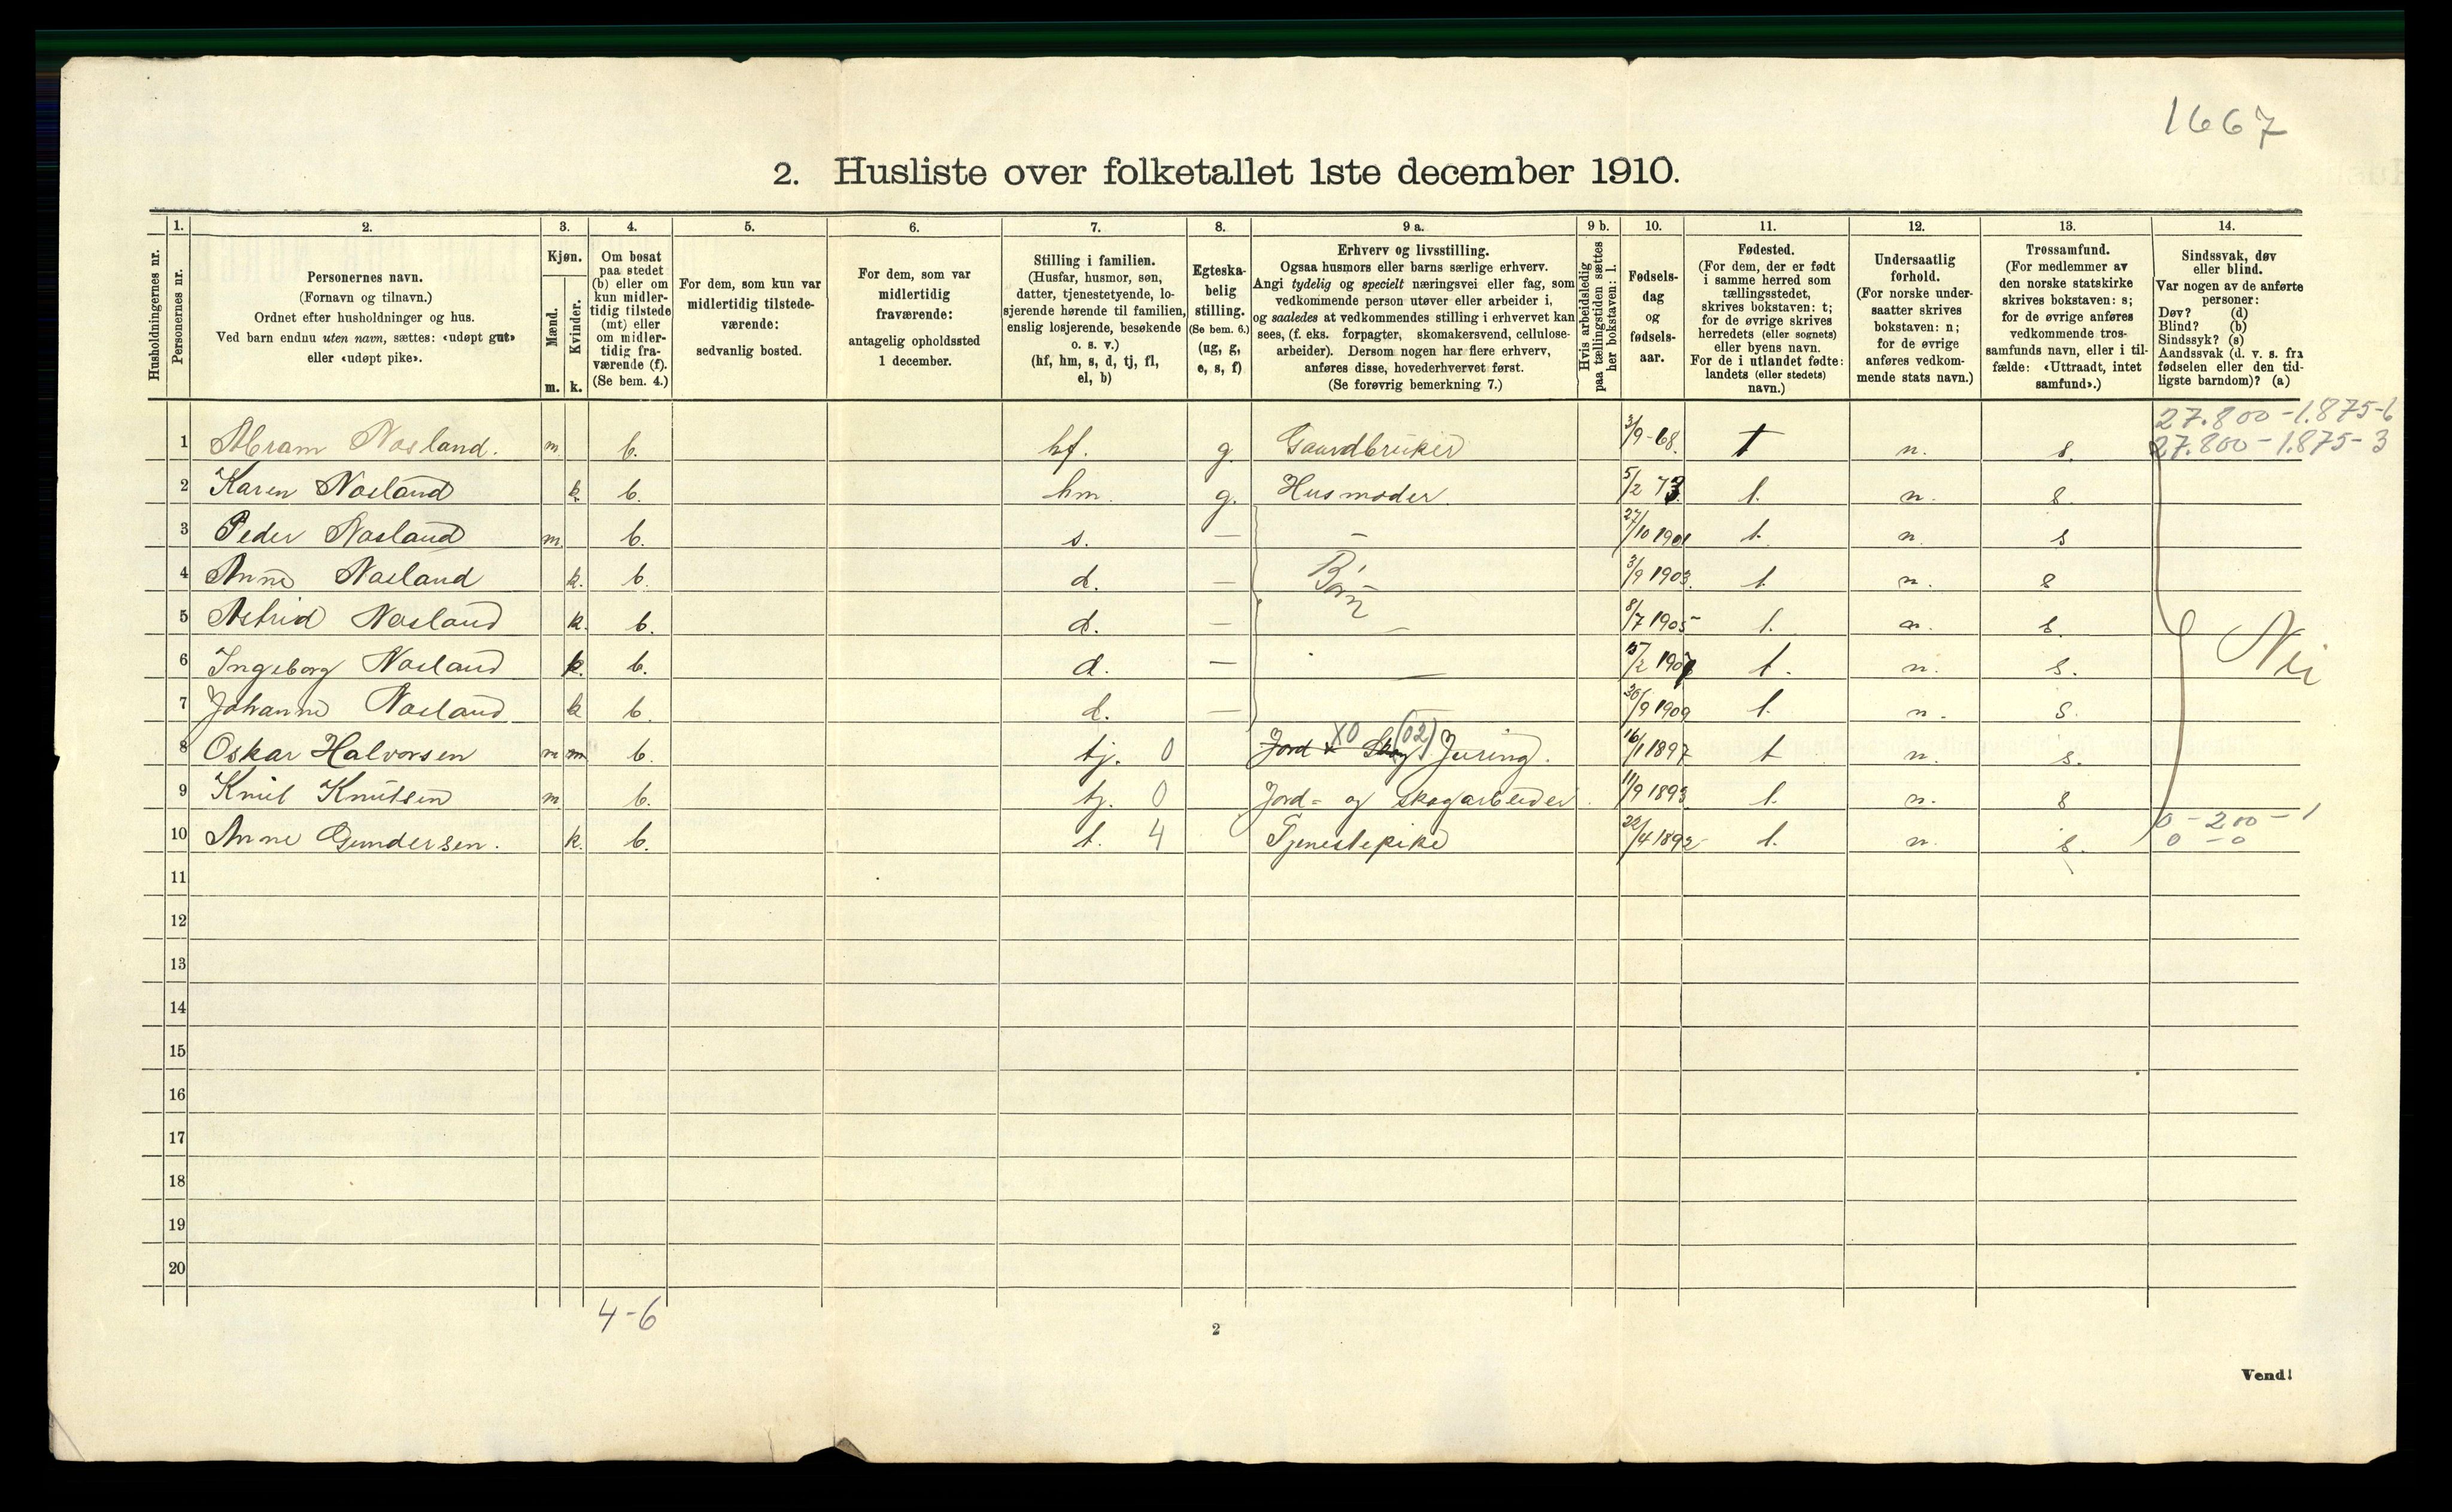 1667
2. Husliste over folketallet 1ste december 1910.
1. 2. 3. 4. 5. 6. 7. 8. 9 a. 9 b. 10. 11. 12. 13. 14.
Husholdningernes nr.
Personernes nr.
Personernes navn.
(Fornavn og tilnavn.)
Ordnet efter husholdninger og hus.
Ved barn endnu uten navn, sættes: «udøpt gut»
eller «udøpt pike».
Kjøn.
Mænd.
m.
Kvinder.
k.
Om bosat
paa stedet
(b) eller om
kun midler-
tidig tilstede
(mt) eller
om midler-
tidig fra-
værende (f).
(Se bem. 4.)
For dem, som kun var
midlertidig tilstede-
værende:
sedvanlig bosted.
For dem, som var
midlertidig
fraværende:
antagelig opholdssted
1 december.
Stilling i familien.
(Husfar, husmor, søn,
datter, tjenestetyende, lo-
sjerende hørende til familien,
enslig losjerende, besøkende
o. s. v.)
(hf, hm, s, d, tj, fl,
el, b)
Egteska-
belig
stilling.
(Se bem. 6.)
(ug, g,
e, s, f)
Erhverv og livsstilling.
Ogsaa husmors eller barns særlige erhverv.
Angi tydelig og specielt næringsvei eller fag, som
vedkommende person utøver eller arbeider i,
og saaledes at vedkommendes stilling i erhvervet kan
sees, (f. eks. forpagter, skomakersvend, cellulose-
arbeider). Dersom nogen har flere erhverv,
anføres disse, hovederhvervet først.
(Se forøvrig bemerkning 7.)
Hvis arbeidsledig
paa tællingstiden sættes
her bokstaven: l.
Fødsels-
dag
og
fødsels-
aar.
Fødested.
(For dem, der er født
i samme herred som
tællingsstedet,
skrives bokstaven: t;
for de øvrige skrives
herredets (eller sognets)
eller byens navn.
For de i utlandet fødte:
landets (eller stedets)
navn.)
Undersaatlig
forhold.
(For norske under-
saatter skrives
bokstaven: n;
for de øvrige
anføres vedkom-
mende stats navn.)
Trossamfund.
(For medlemmer av
den norske statskirke
skrives bokstaven: s;
for de øvrige anføres
vedkommende tros-
samfunds navn, eller i til-
fælde: «Uttraadt, intet
samfund».)
Sindssvak, døv
eller blind.
Var nogen av de anførte
personer:
Døv? (d)
Blind? (b)
Sindssyk? (s)
Aandssvak (d. v. s. fra
fødselen eller den tid-
ligste barndom)? (a)
27.800 - 1.875-6
1 Abram Nasland. m b. hf. g. Gaardbruker 3/9-68. t n. s. 27.800 - 1.875-3
2 Karen Nasland k b. hm. g. Husmoder 5/2 73 t. n. s
3 Peder Nasland m. b. s. — — 27/10 1901 t. n. s
4 Anne Nasland k. b. d. — Børn 3/9 1903. t n. s
5 Astrid Nasland k. b. d. — — 8/7 1905 t. n. s. Nei
6 Ingeborg Nasland k. b. d. — — 15/2 1907 t. n. s.
7 Johanne Nasland k b. d. — 30/9 1909 t. n. s.
X0 (02)
8 Oskar Halvorsen m m b. tj. 0 Jord x Skog Juring. 16/1 1897 t n. s.
9 Knut Knutsen m. b. tj. 0 Jord- og skogarbeider. 11/9 1893 t. n. s 0 - 200 - 1
10 Anne Gundersen. k. b. t. 4 Tjenestepike 22/4 1892 t. n. s. 0 - 0
11
12
13
14
15
16
17
18
19
20
4-6
2
Vend!